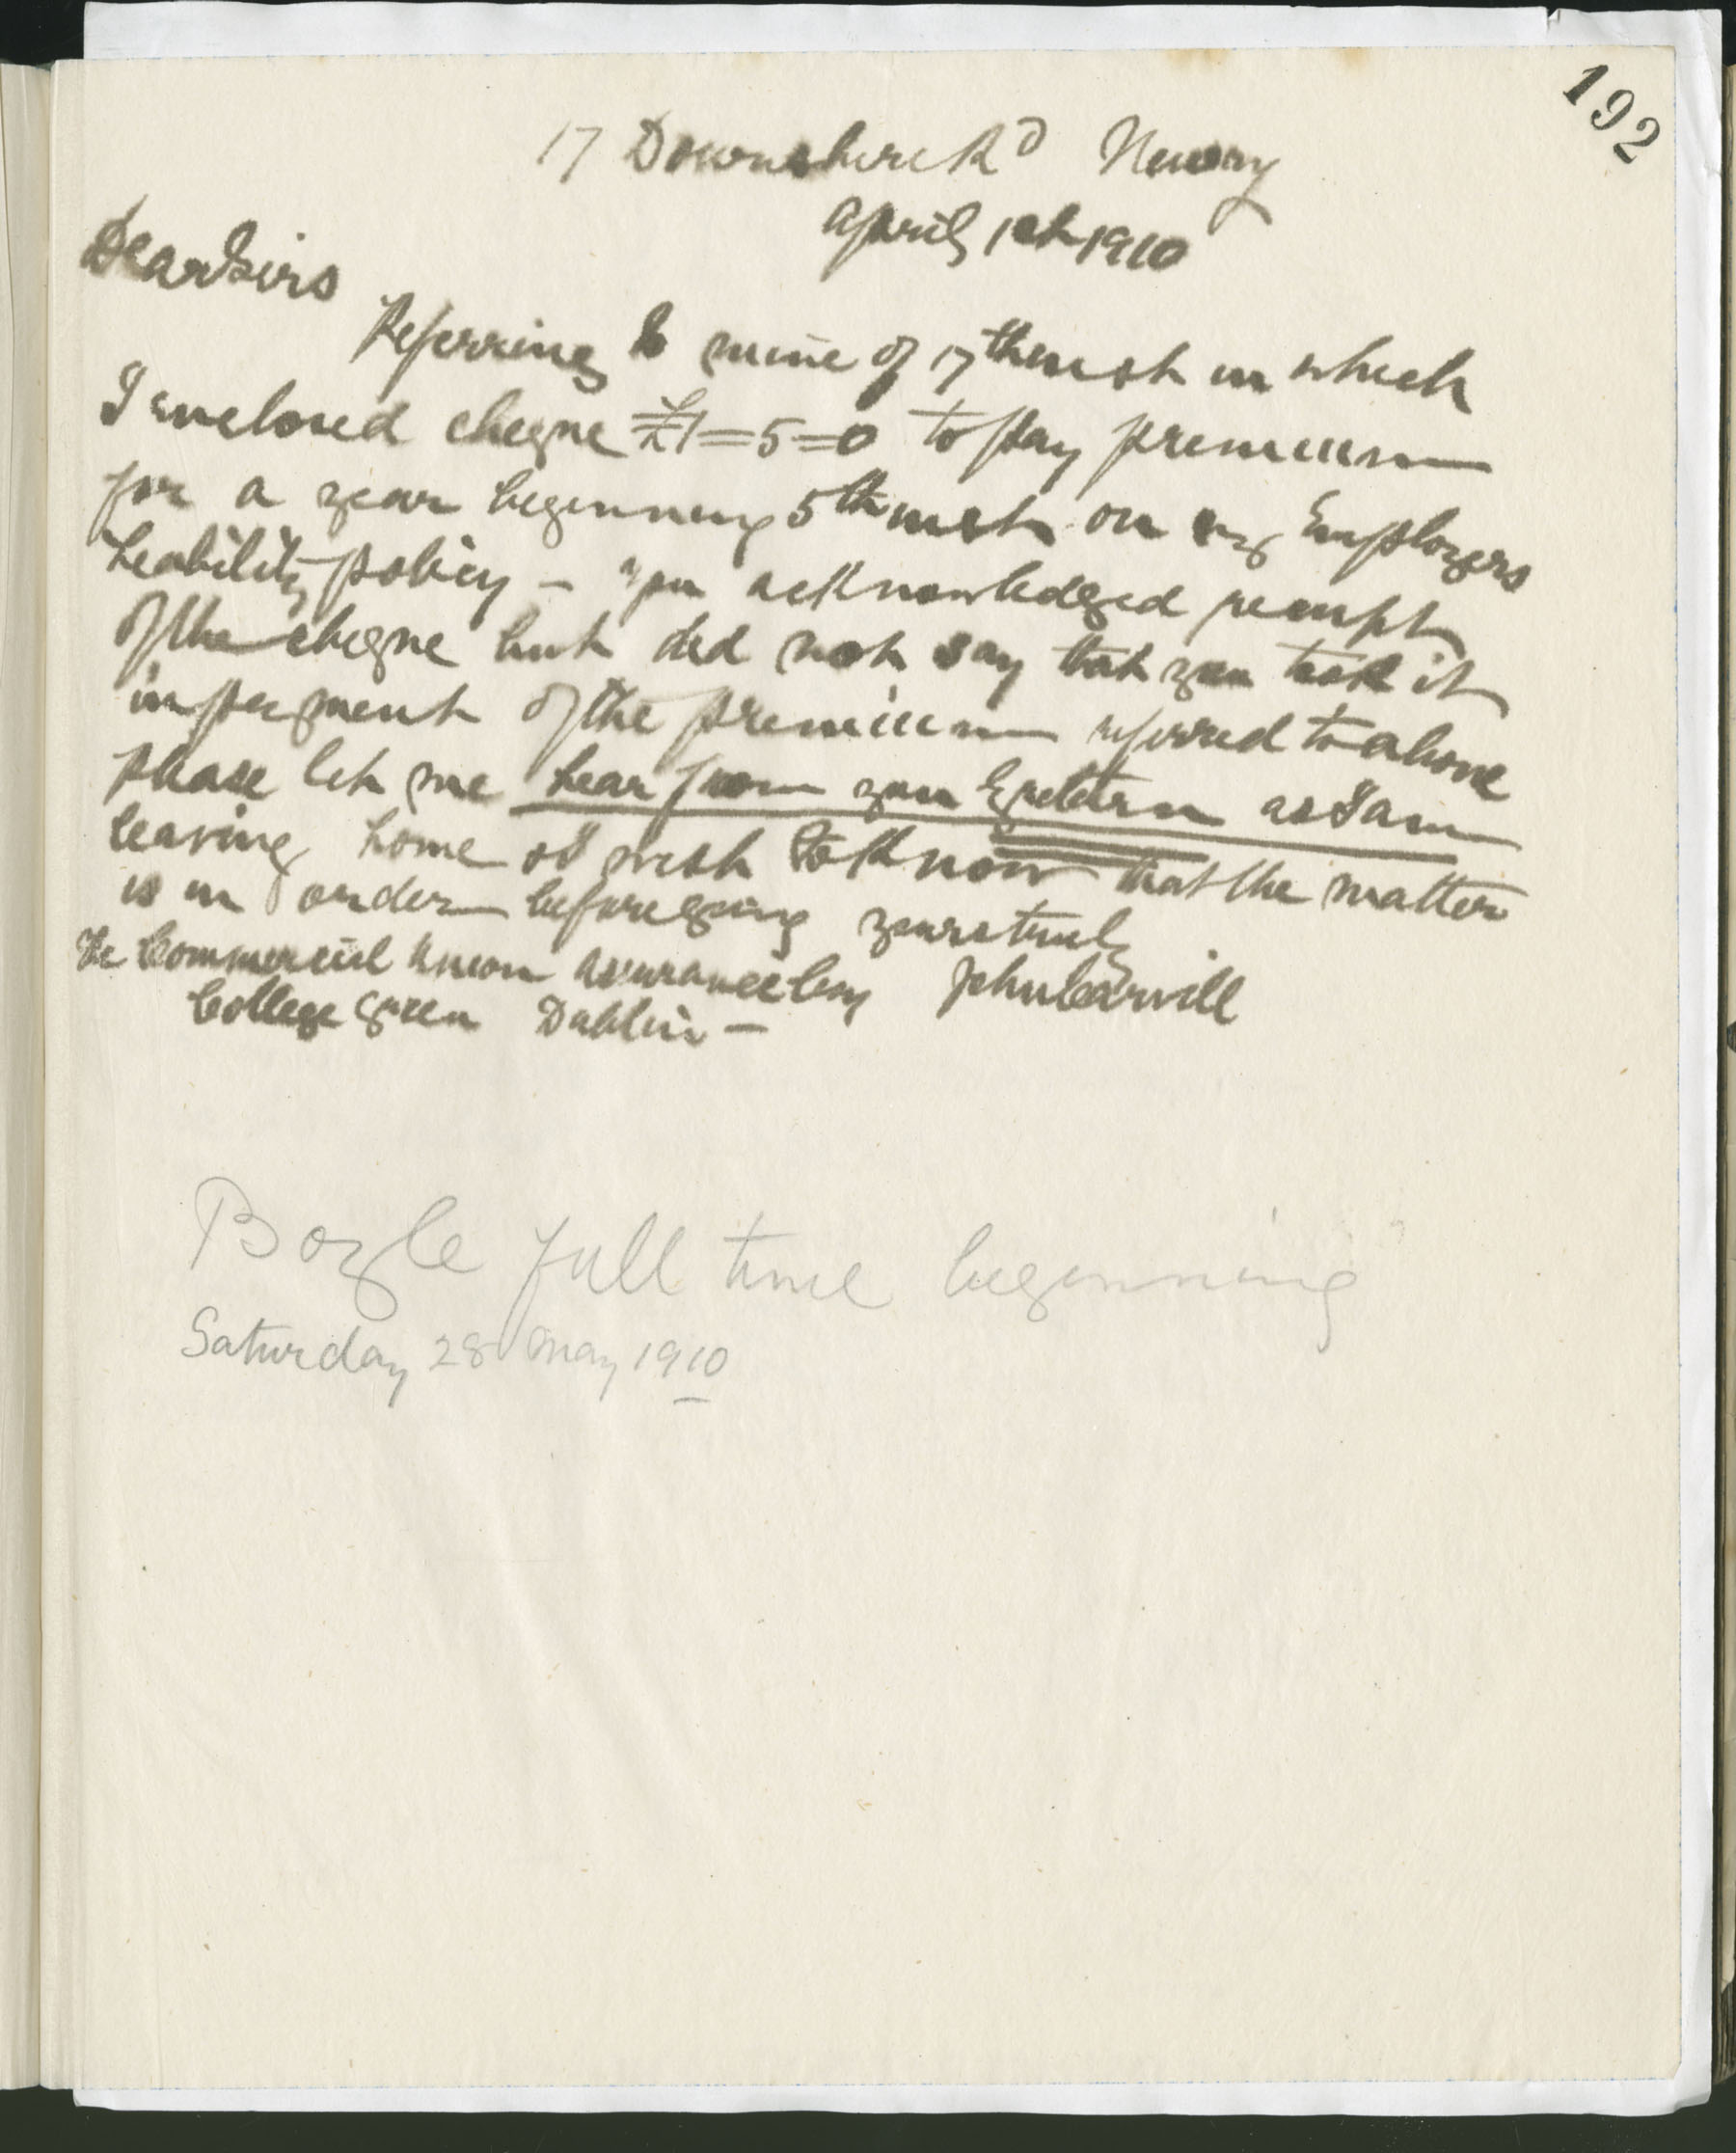 192
17 Downshire Rd Newry
April 1910
Dear Sirs
Referring to mine of 17th inst in which
I enclosed cheque £1=5=0 to pay premium
for a year beginning 5th inst on my Employers
Liability policy – you acknowledged receipt
of the cheque but did not say that you took it
in payment of the premium referred to above
please let me hear from you by return as I am
leaving home & I wish to know that the matter
is in order before going yours truly
The Commercial Union Assurance Coy John Carvill
College Green Dublin –
Boyle full time beginning
Saturday 28 May 1910